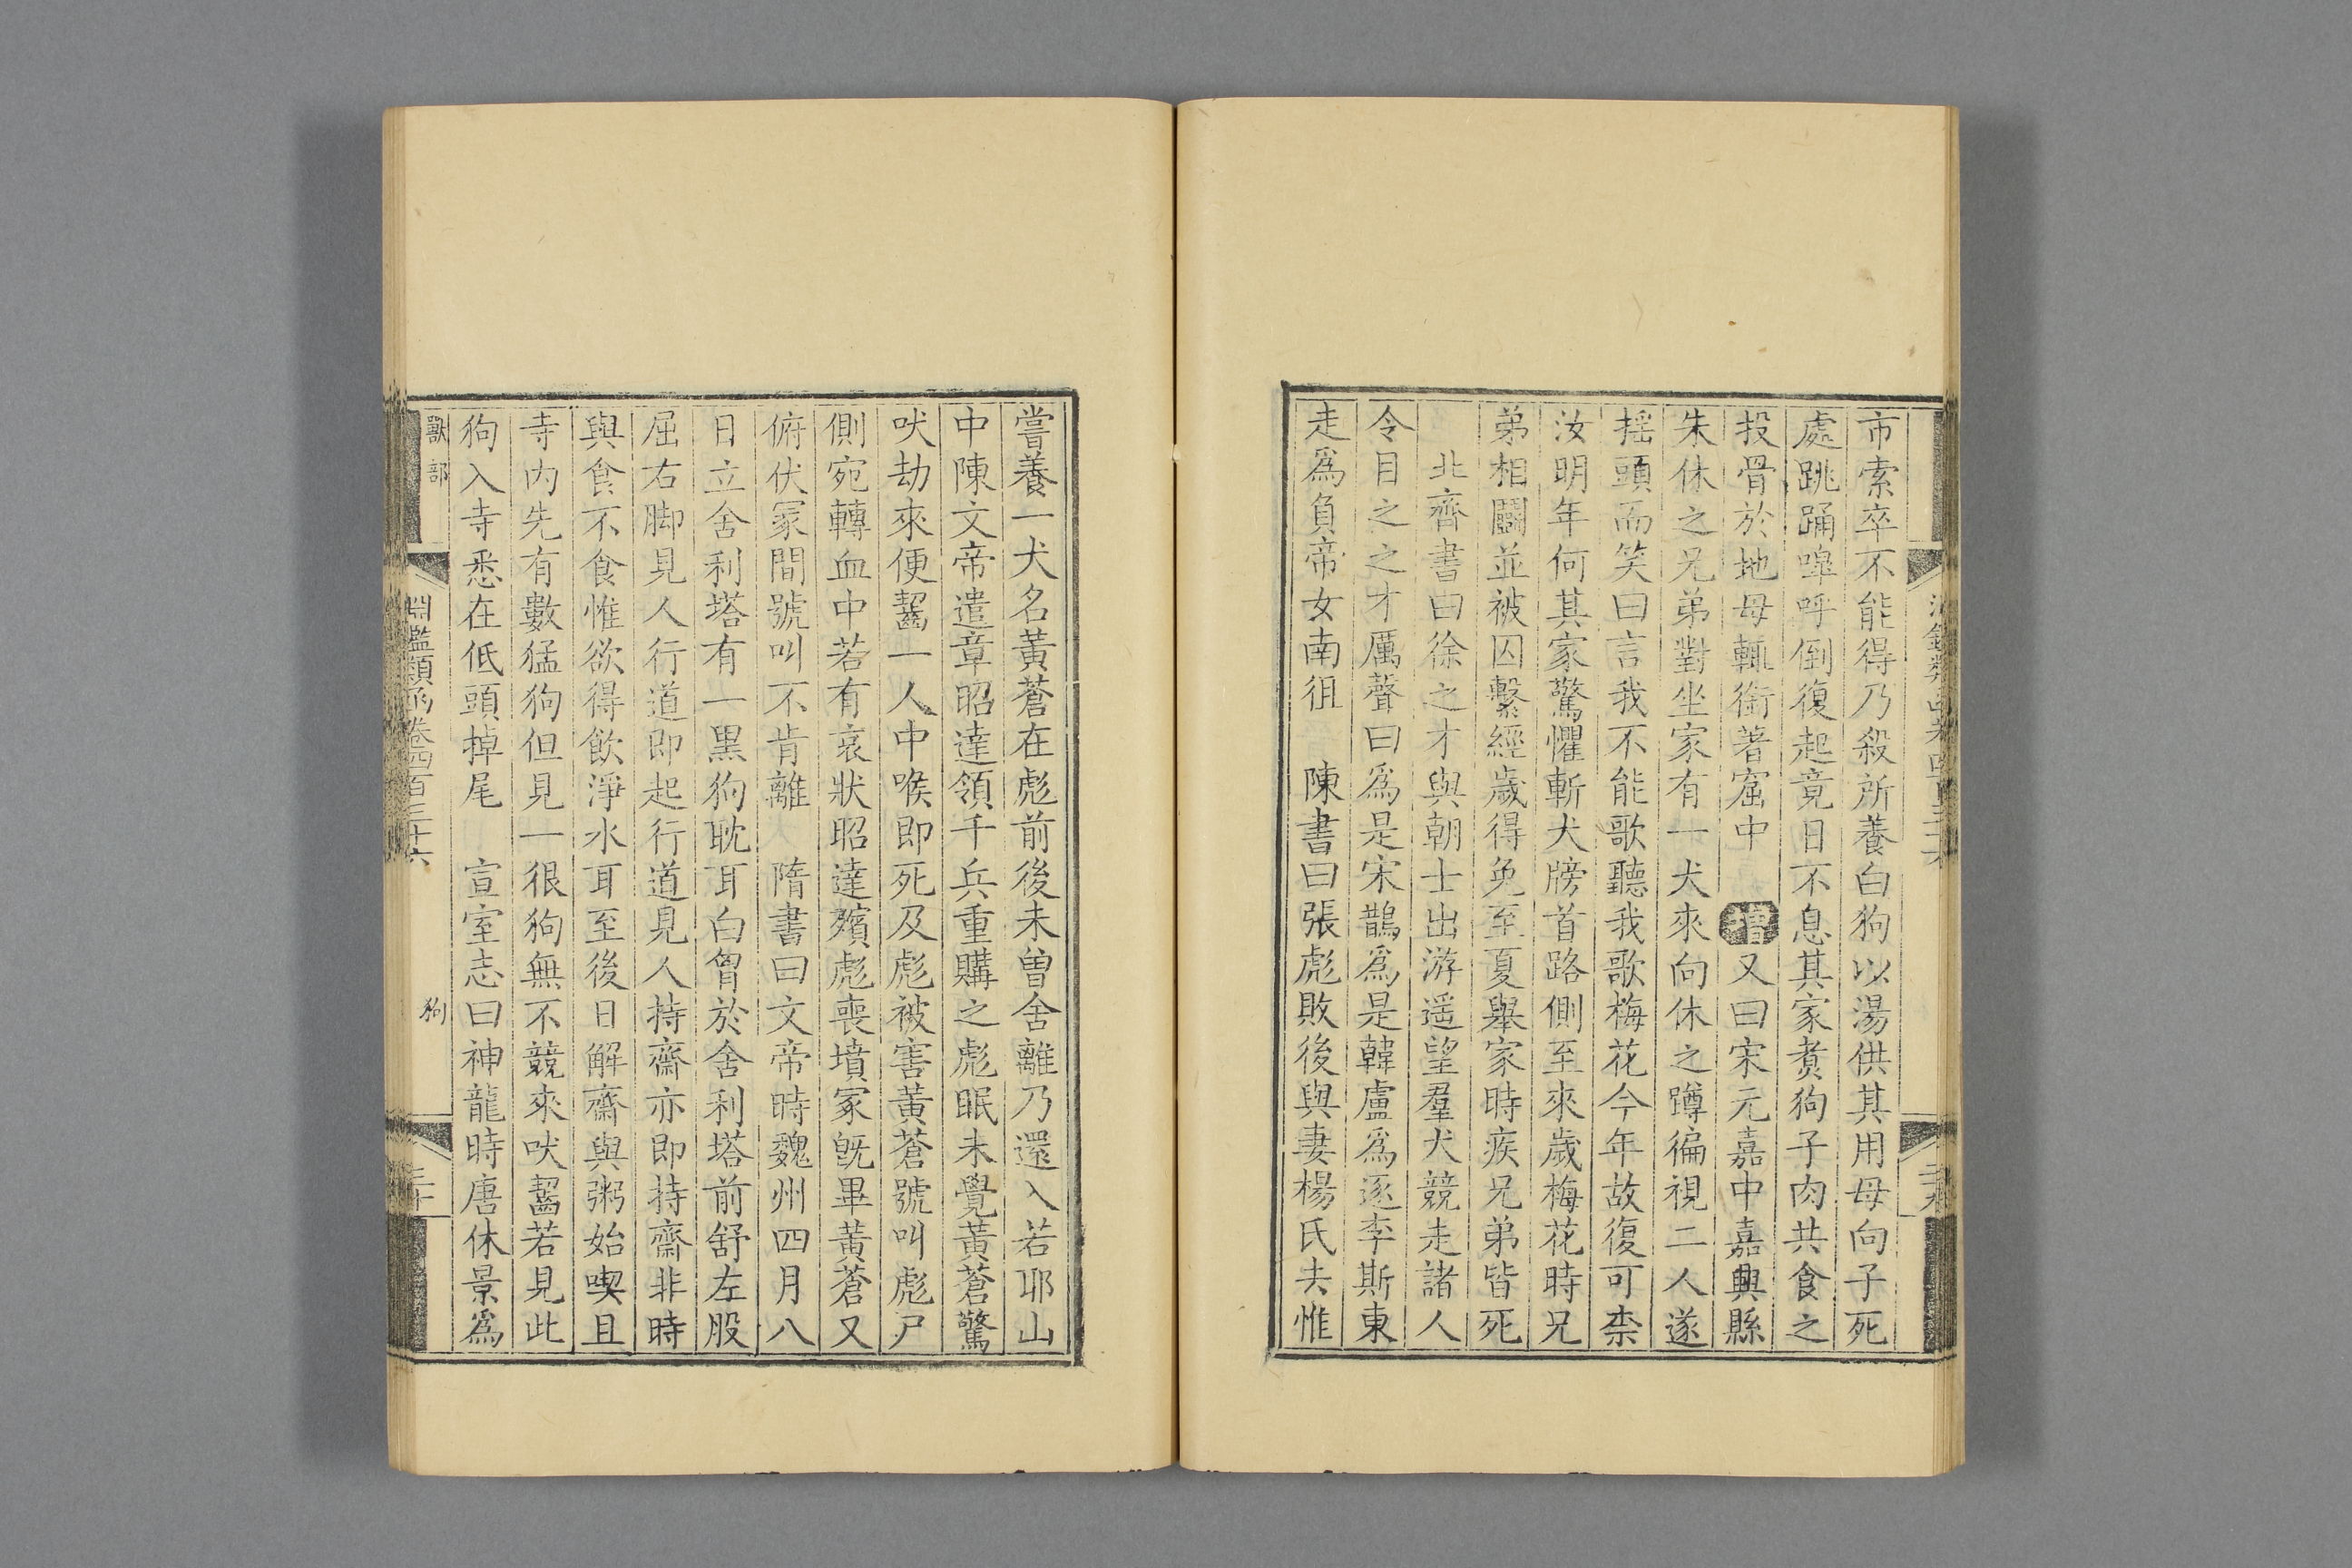 市索卒不能得乃殺所養白狗以湯供其用母向子死
處跳踊嘷呼倒復起竟日不息其家煑狗子肉共食之
投骨於地母輒銜著窟中 增又曰宋元嘉中嘉興縣
朱休之兄弟對坐家有一犬來向休之蹲徧視二人遂
揺頭而笑曰言我不能歌聽我歌梅花今年故復可柰
汝明年何其家驚懼斬犬牓首路側至來歲梅花時兄
弟相鬬並被囚繫經歲得免至夏舉家時疾兄弟皆死
北齊書曰徐之才與朝士出游遥望羣犬競走諸人
令目之之才厲聲曰爲是宋鵲爲是韓盧爲逐李斯東
走爲負帝女南徂 陳書曰張彪敗後與妻楊氏去惟
嘗養一犬名黃蒼在彪前後未曽舍離乃還入若耶山
中陳文帝遣章昭達領千兵重購之彪眠未覺黃蒼驚
吠劫來便齧一人中喉即死及彪被害黃蒼號叫彪尸
側宛轉血中若有哀狀昭達殯彪喪墳冡旣畢黃蒼又
俯伏冡間號叫不肯離 隋書曰文帝時魏州四月八
日立舍利塔有一黑狗耽耳白胷於舍利塔前舒左股
屈右脚見人行道即起行道見人持齋亦即持齋非時
與食不食惟欲得飲淨水耳至後日解齋與粥始喫且
寺内先有數猛狗但見一很狗無不競來吠齧若見此
狗入寺悉在低頭掉尾 宣室志曰神龍時唐休景爲
獸部 淵鑑類函卷四百三十六 狗 三十